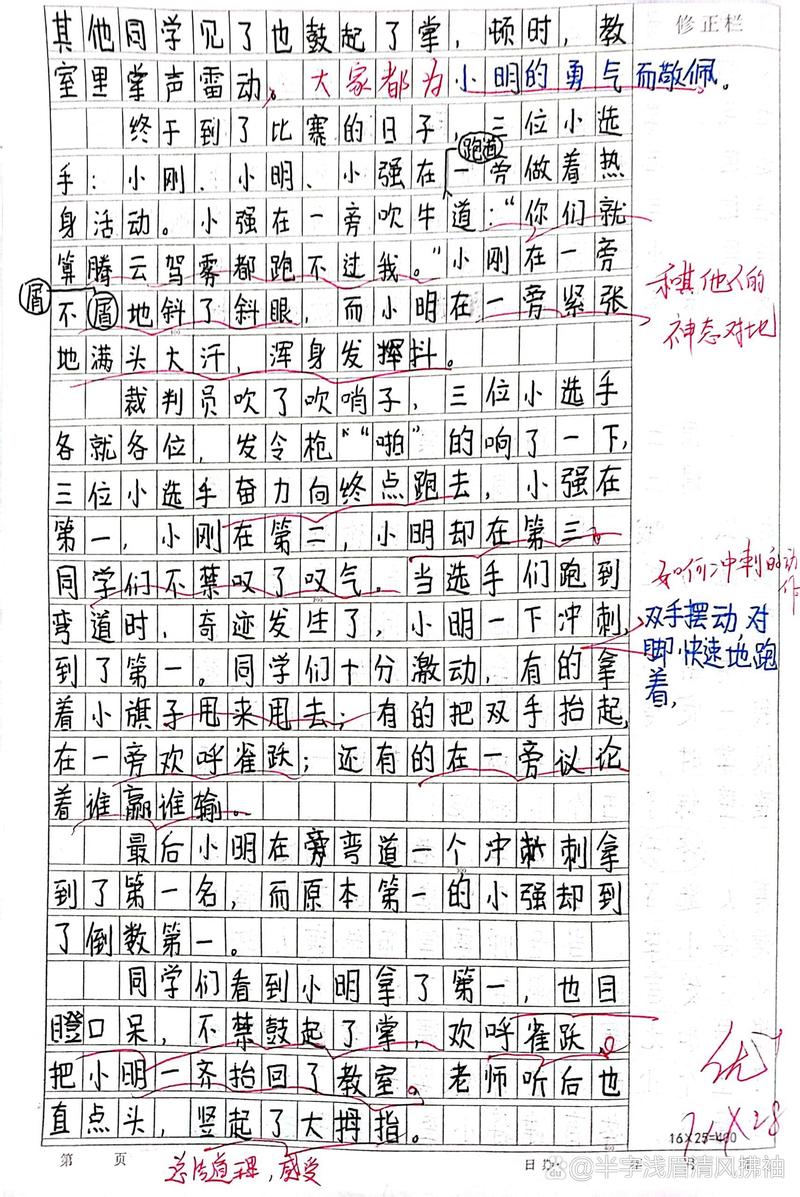 修正栏
其他同学见了也鼓起了掌，顿时，教
室里掌声雷动。大家都为小明的勇气而敬佩。
终于到了比赛的日子，三位小选
跑道
手：小刚、小明、小强在一旁做着热
身活动。小强在一旁吹牛道：“你们就
算腾云驾雾都跑不过我。”小刚在一旁
屑
不屑地斜了斜眼，而小明在一旁紧张
和其他人的
神态对地
地满头大汗，浑身发抖。
裁判员吹了吹哨子，三位小选手
各就各位，发令枪“啪”的响了一下，
三位小选手奋力向终点跑去，小强在
第一，小刚在第二，小明却在第三。
同学们不禁叹了叹气。当选手们跑到
如何冲刺的动作
弯道时，奇迹发生了，小明一下冲刺，
双手摆动，对
脚快速地跑
着，
到了第一。同学们十分激动，有的拿
着小旗子甩来甩去；有的把双手抬起，
在一旁欢呼雀跃；还有的在一旁议论
着谁赢谁输。
最后小明在弯道一个冲刺拿
到了第一名，而原本第一的小强却到
了倒数第一。
同学们看到小明拿了第一，也目
瞪口呆，不禁鼓起了掌，欢呼雀跃。
把小明一齐抬回了教室。老师听后也
直点头，竖起了大拇指。
优
16×25=400
第 页
道理，感受
日期
@半字浅眉清风拂袖